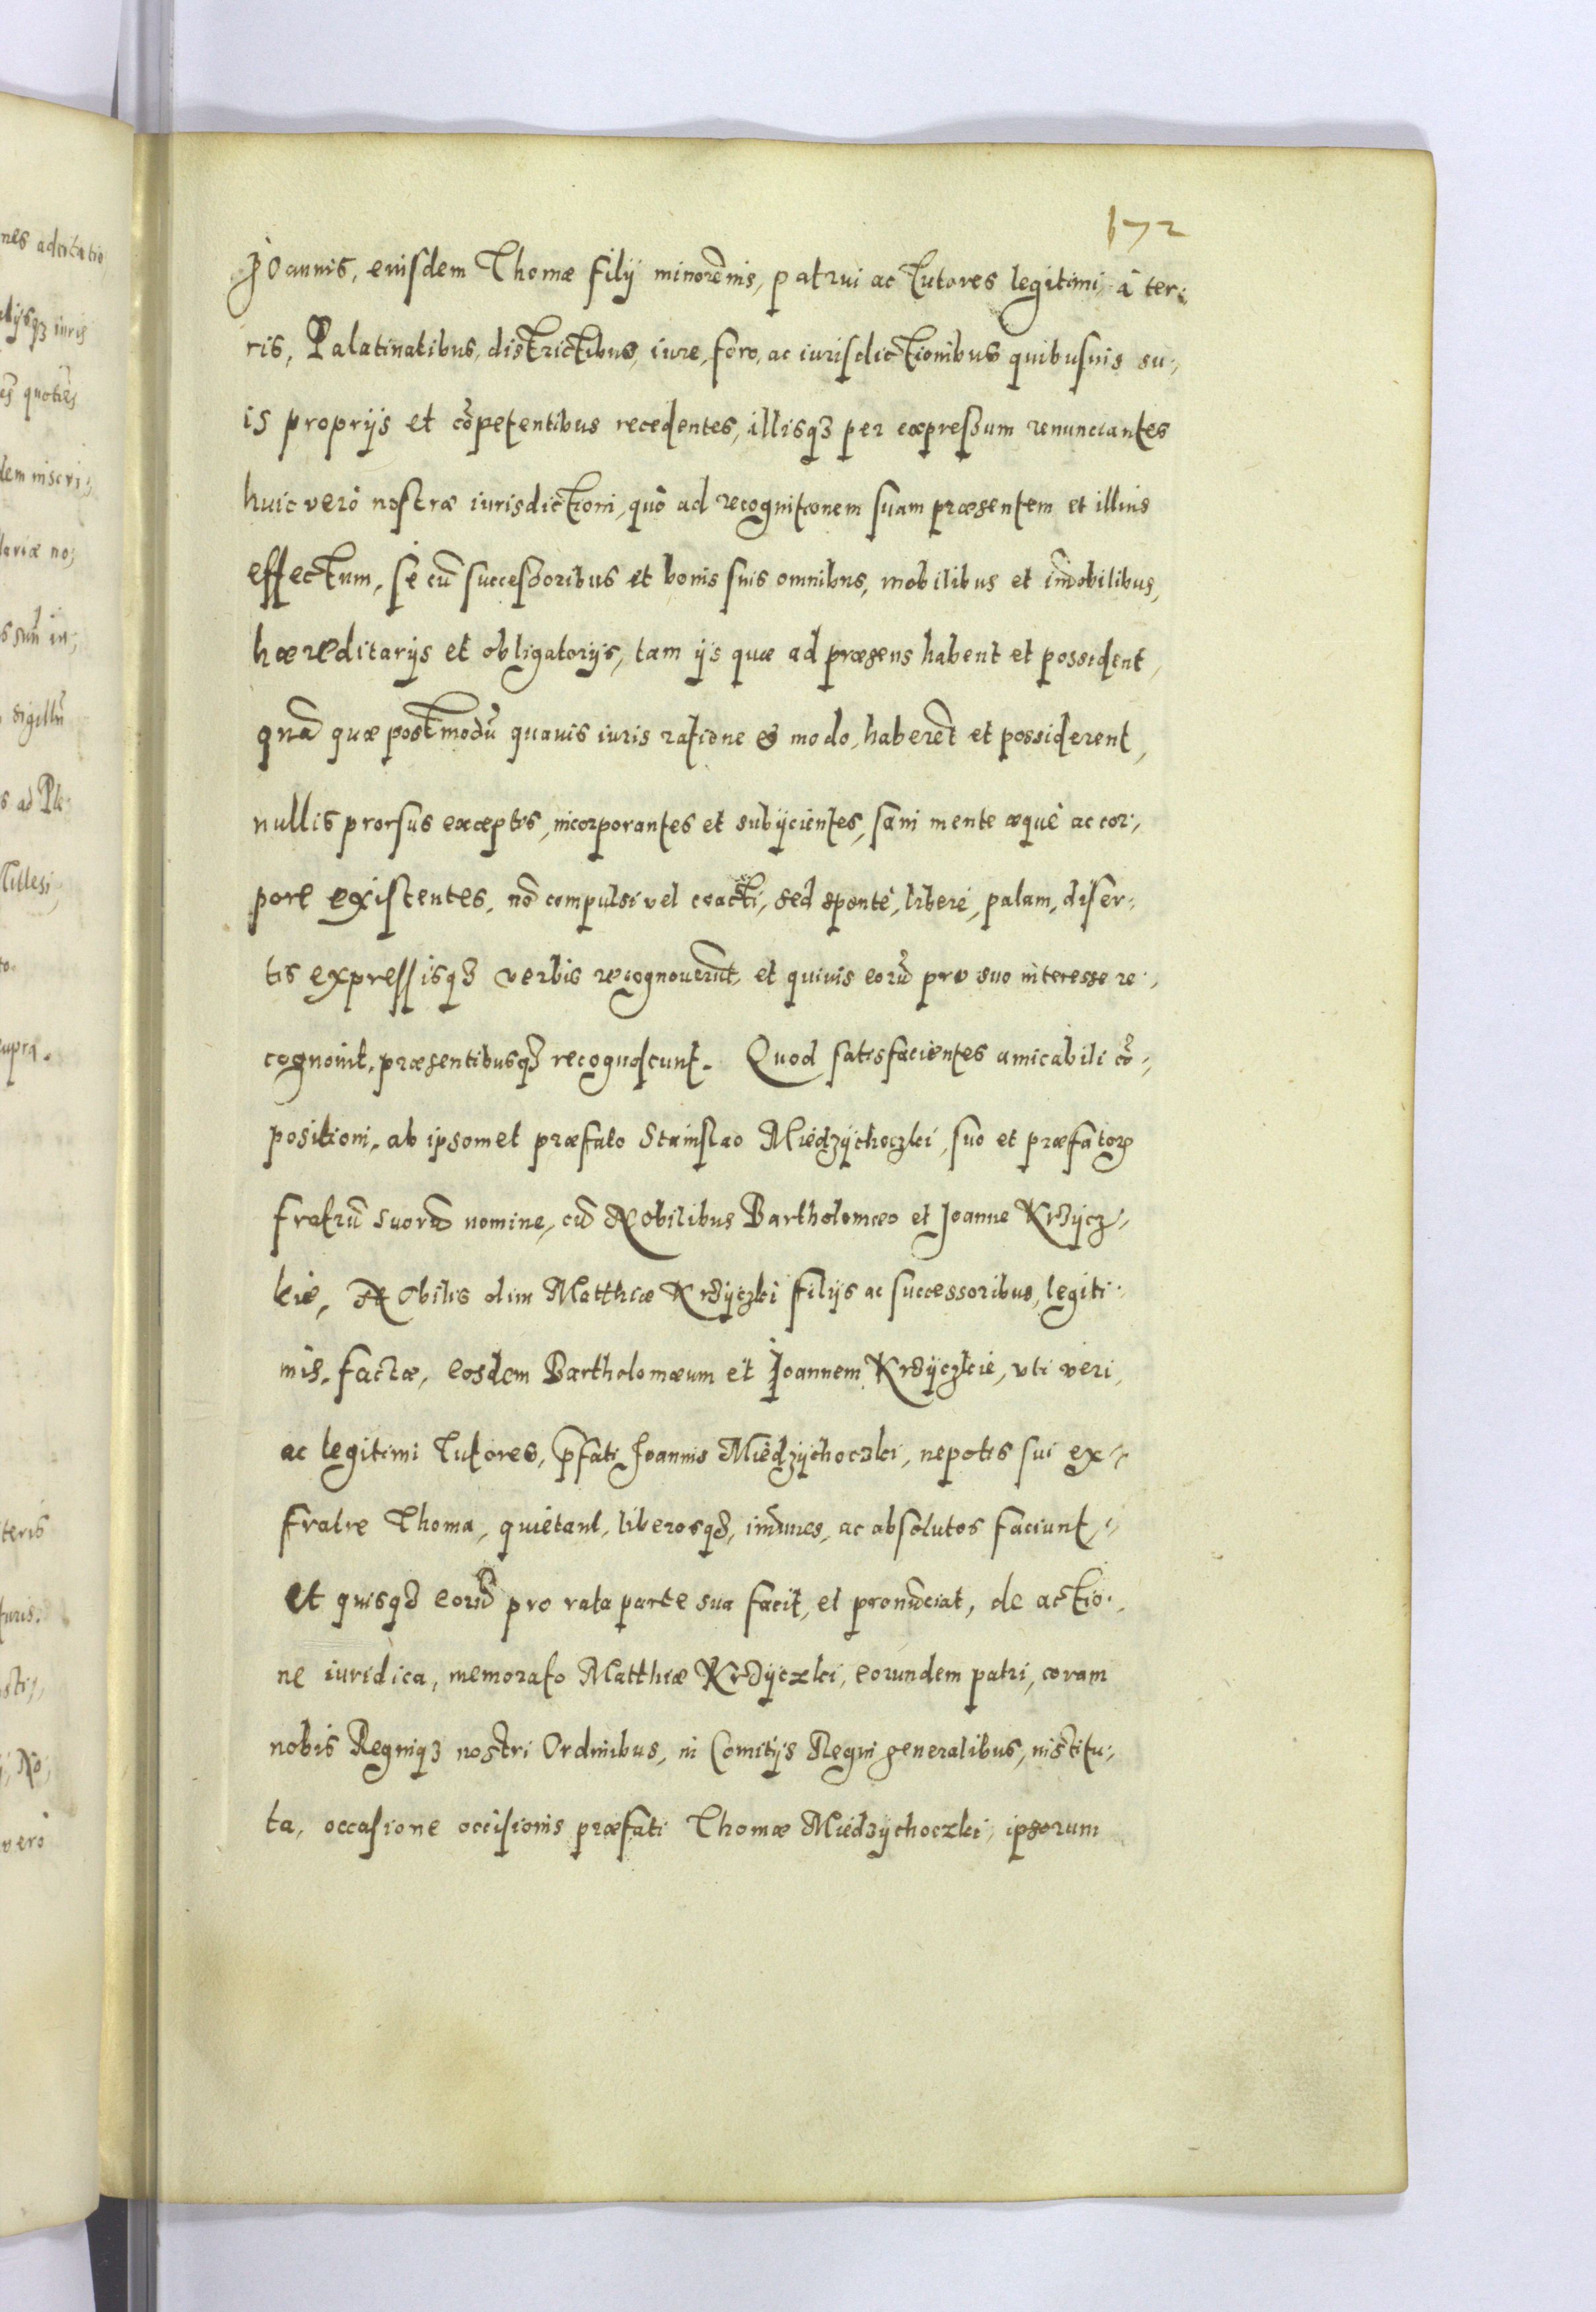 172
Joannis, eiusdem Thomæ filij minorẽnis, patrui ac tutores legitimi, à ter:
ris, Palatinatibus, districtibus, iure, foro, ac iurisdictionibus quibusuis su:
is proprijs et cõpetentibus recedentes, illisqꝫ per expressum renunciantes
huic verò nostræ iurisdictioni, quò ad recognitionem suam præsentem et illius
effectum, sè cũ successoribus et bonis suis omnibus, mobilibus et im̃obilibus,
hæreditarijs et obligatorijs, tam ijs quæ ad præsens habent et possident,
quã quæ postmodũ quauis iuris ratione et modo, haberẽt et possiderent,
nullis prorsus exceptis, incorporantes et subijcientes, sani mente æquè ac cor:
pore existentes, nõ compulsi vel coacti, sed spontè, liberè, palam, diser:
tis expressisqꝫ verbis recognouerũt, et quiuis eorũ pro suo interesse re:
cognouit, præsentibusqꝫ recognoscunt. Quod satisfacientes amicabili cõ:
positioni, ab ipsomet præfato Stanislao Miedzÿchoczki, suo et præfatoꝝ
fratrũ suorũ nomine, cũ Nobilibus Bartholomæo et Joanne Krzÿcz:
kie, Nobilis olim Matthiæ Krzÿczki filijs ac successoribus, legiti:
mis, factæ, eosdem Bartholomæum et Joannem Krzÿczkie, vti veri,
ac legitimi tutores, p̃fati Joannis Miedzÿchoczki, nepotis sui ex
fratre Thoma, quietant, liberosqꝫ, im̃unes, ac absolutos faciunt,
et quisqꝫ eorũ pro rata parte sua facit, et pronũciat, de actio:
ne iuridica, memorato Matthiæ Krzÿczki, eorundem patri, coram
nobis Regniqꝫ nostri Ordinibus, in Comitijs Regni generalibus, institu:
ta, occasione occisionis præfati Thomæ Miedzÿchoczki, ipsorum